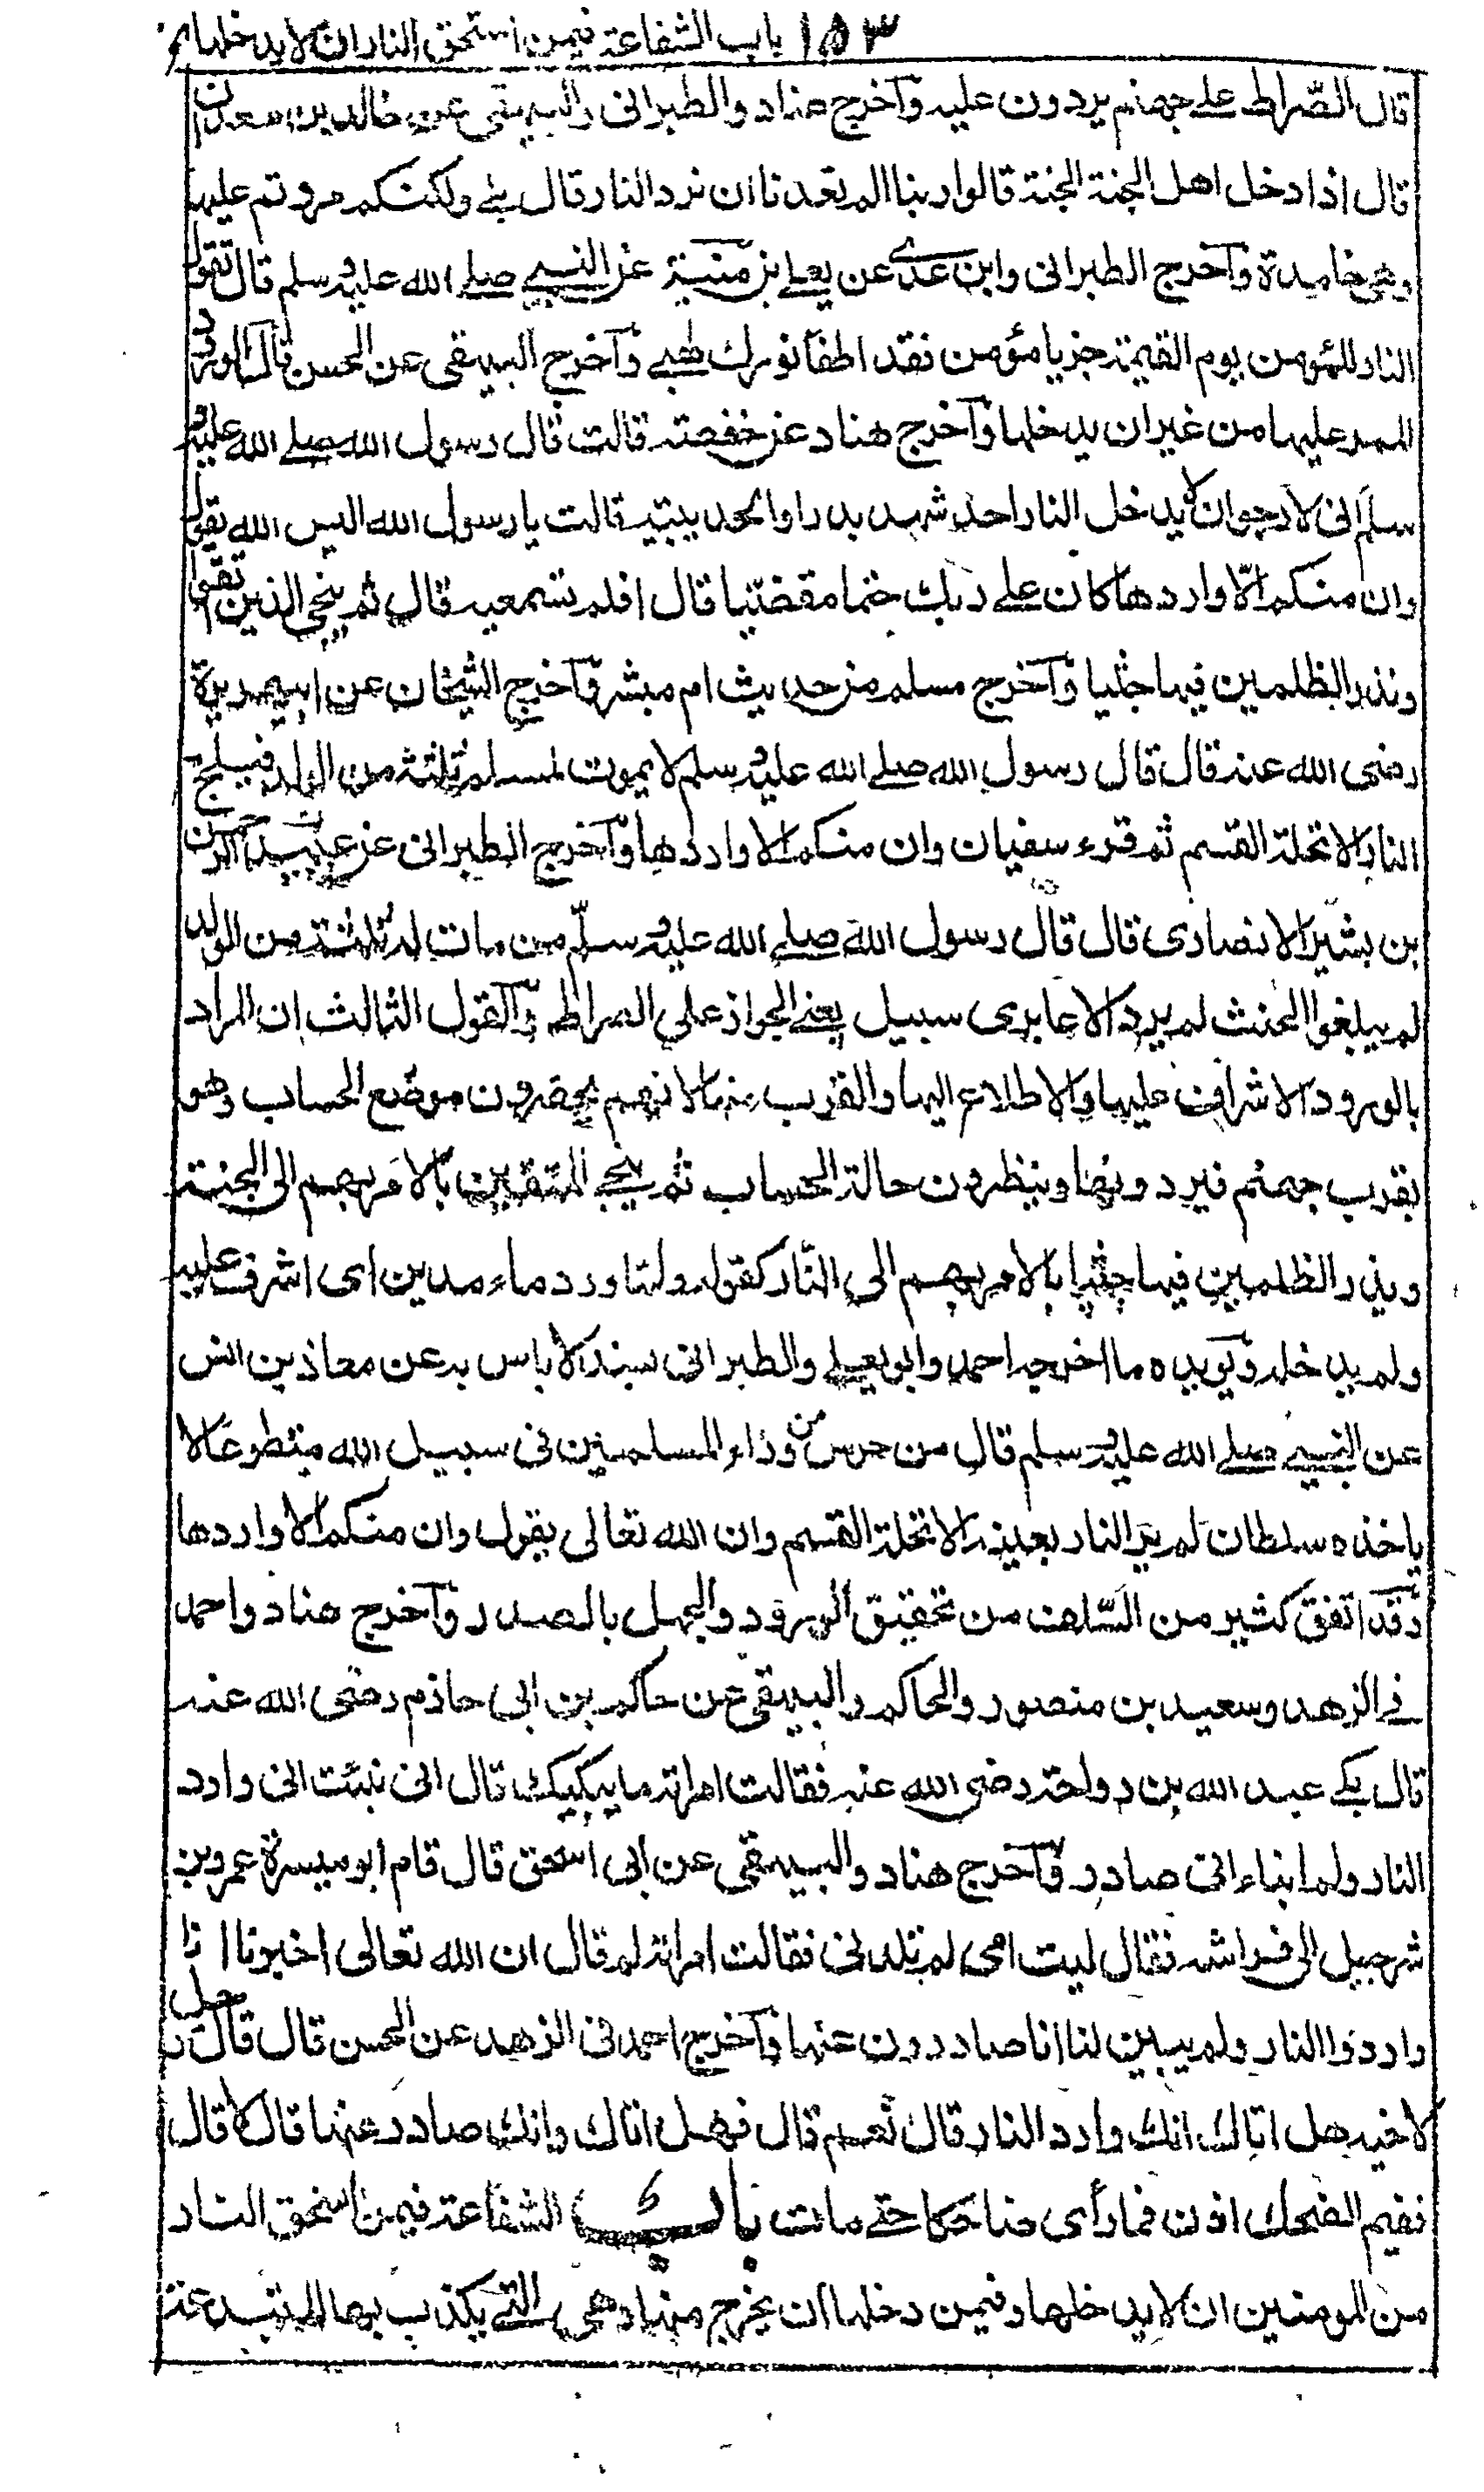 ١٥٣ باب الشفاعة فيمن استحق النار ان لا يدخلها
قال الصّراط علے جهنم يردون عليه وآخرج هناد والطبرانى والبيهقى عن خالد بن معدان
قال اذا دخل اهل الجنة الجنة قالوا ربنا الم تعدنا ان نرد النار قال بلے ولكنكم مررتم عليها
وهى خامدة وآخرج الطبرانى وابن عدے عن يعلے بن منية عن النبے صلے الله عليه وسلم قال تقول
النار للمؤمن يوم القيمة جز يا مؤمن فقد اطفأ نورك لهبے وآخرج البيهقى عن الحسن قال الورود
الممر عليها من غير ان يدخلها وآخرج هناد عن حفصة قالت قال رسول الله صلے الله عليه و
سلم انى لارجو ان لا يدخل النار احد شهد بدرا والحديبية قالت يا رسول الله اليس الله يقول
وان منكم الّا واردها كان علے ربك حتما مقضيا قال افلم تسمعيه قال ثم ننجى الذين اتقوا
ونذر الظلمين فيها جثيا وآخرج مسلم من حديث ام مبشر وآخرج الشيخان عن ابے هريرة
رضى الله عنه قال قال رسول الله صلے الله عليه وسلم لا يموت لمسلم ثلثة من الولد فيلج
النار الا تحلة القسم ثم قرء سفيان وان منكم الا واردها وآخرج الطبرانى عن عبد الرحمن
بن بشير الانصارى قال قال رسول الله صلے الله عليه وسلّم من مات له ثلثة من الولد
لم يبلغوا الحنث لم يرد الا عابرى سبيل يعنے الجواز على الصراط وآلقول الثالث ان المراد
بالورود الاشراف عليها والاطلاع اليها والقرب منها لانهم يحضرون موضع الحساب وهو
بقرب جهنم فيردونها وينظرون حالة الحساب ثم ينجے المتقين بالامر بهم الى الجنة
ويذر الظلمين فيها جثيا بالامر بهم الى النّار كقوله ولما ورد ماء مدين اى اشرف عليه
ولم يدخله ويؤيده ما اخرجه احمد وابو يعلے والطبرانى بسند لا باس به عن معاذ بن انس
عن النبے صلے الله عليه وسلم قال من حرس من وراء المسلمين فى سبيل الله متطوعا لا
ياخذه سلطان لم ير النار بعينه الا تحلة القسم وان الله تعالى يقول وان منكم الا واردها
وقد اتفق كثير من السّلف من تحقيق الورود والجهل بالصدر وآخرج هناد واحمد
فے الزهد وسعيد بن منصور والحاكم والبيهقى عن حاكم بن ابى حازم رضى الله عنه
قال بكے عبد الله بن رواحة رضى الله عنه فقالت امراته ما يبكيك قال انى نبئت انى وارد
النار ولم انباء انى صادر وآخرج هناد والبيهقى عن ابى اسحق قال قام ابو ميسرة عمرو بن
شرحبيل الى فراشه فقال ليت امى لم تلدنى فقالت امراته لم قال ان الله تعالى اخبرنا انا
واردوا النار ولم يبين لنا انا صادرون عنها وآخرج احمد فى الزهد عن الحسن قال قال رجل
لاخيه هل اتاك انك وارد النار قال نعم قال فهل اتاك وانك صادر عنها قال لا قال
ففيم الضحك اذن فما رأى ضاحكا حتے مات باب الشفاعة فيمن استحق النار
من المومنين ان لا يدخلها وفيمن دخلها ان يخرج منها وهى التے يكذب بها المبتدعة